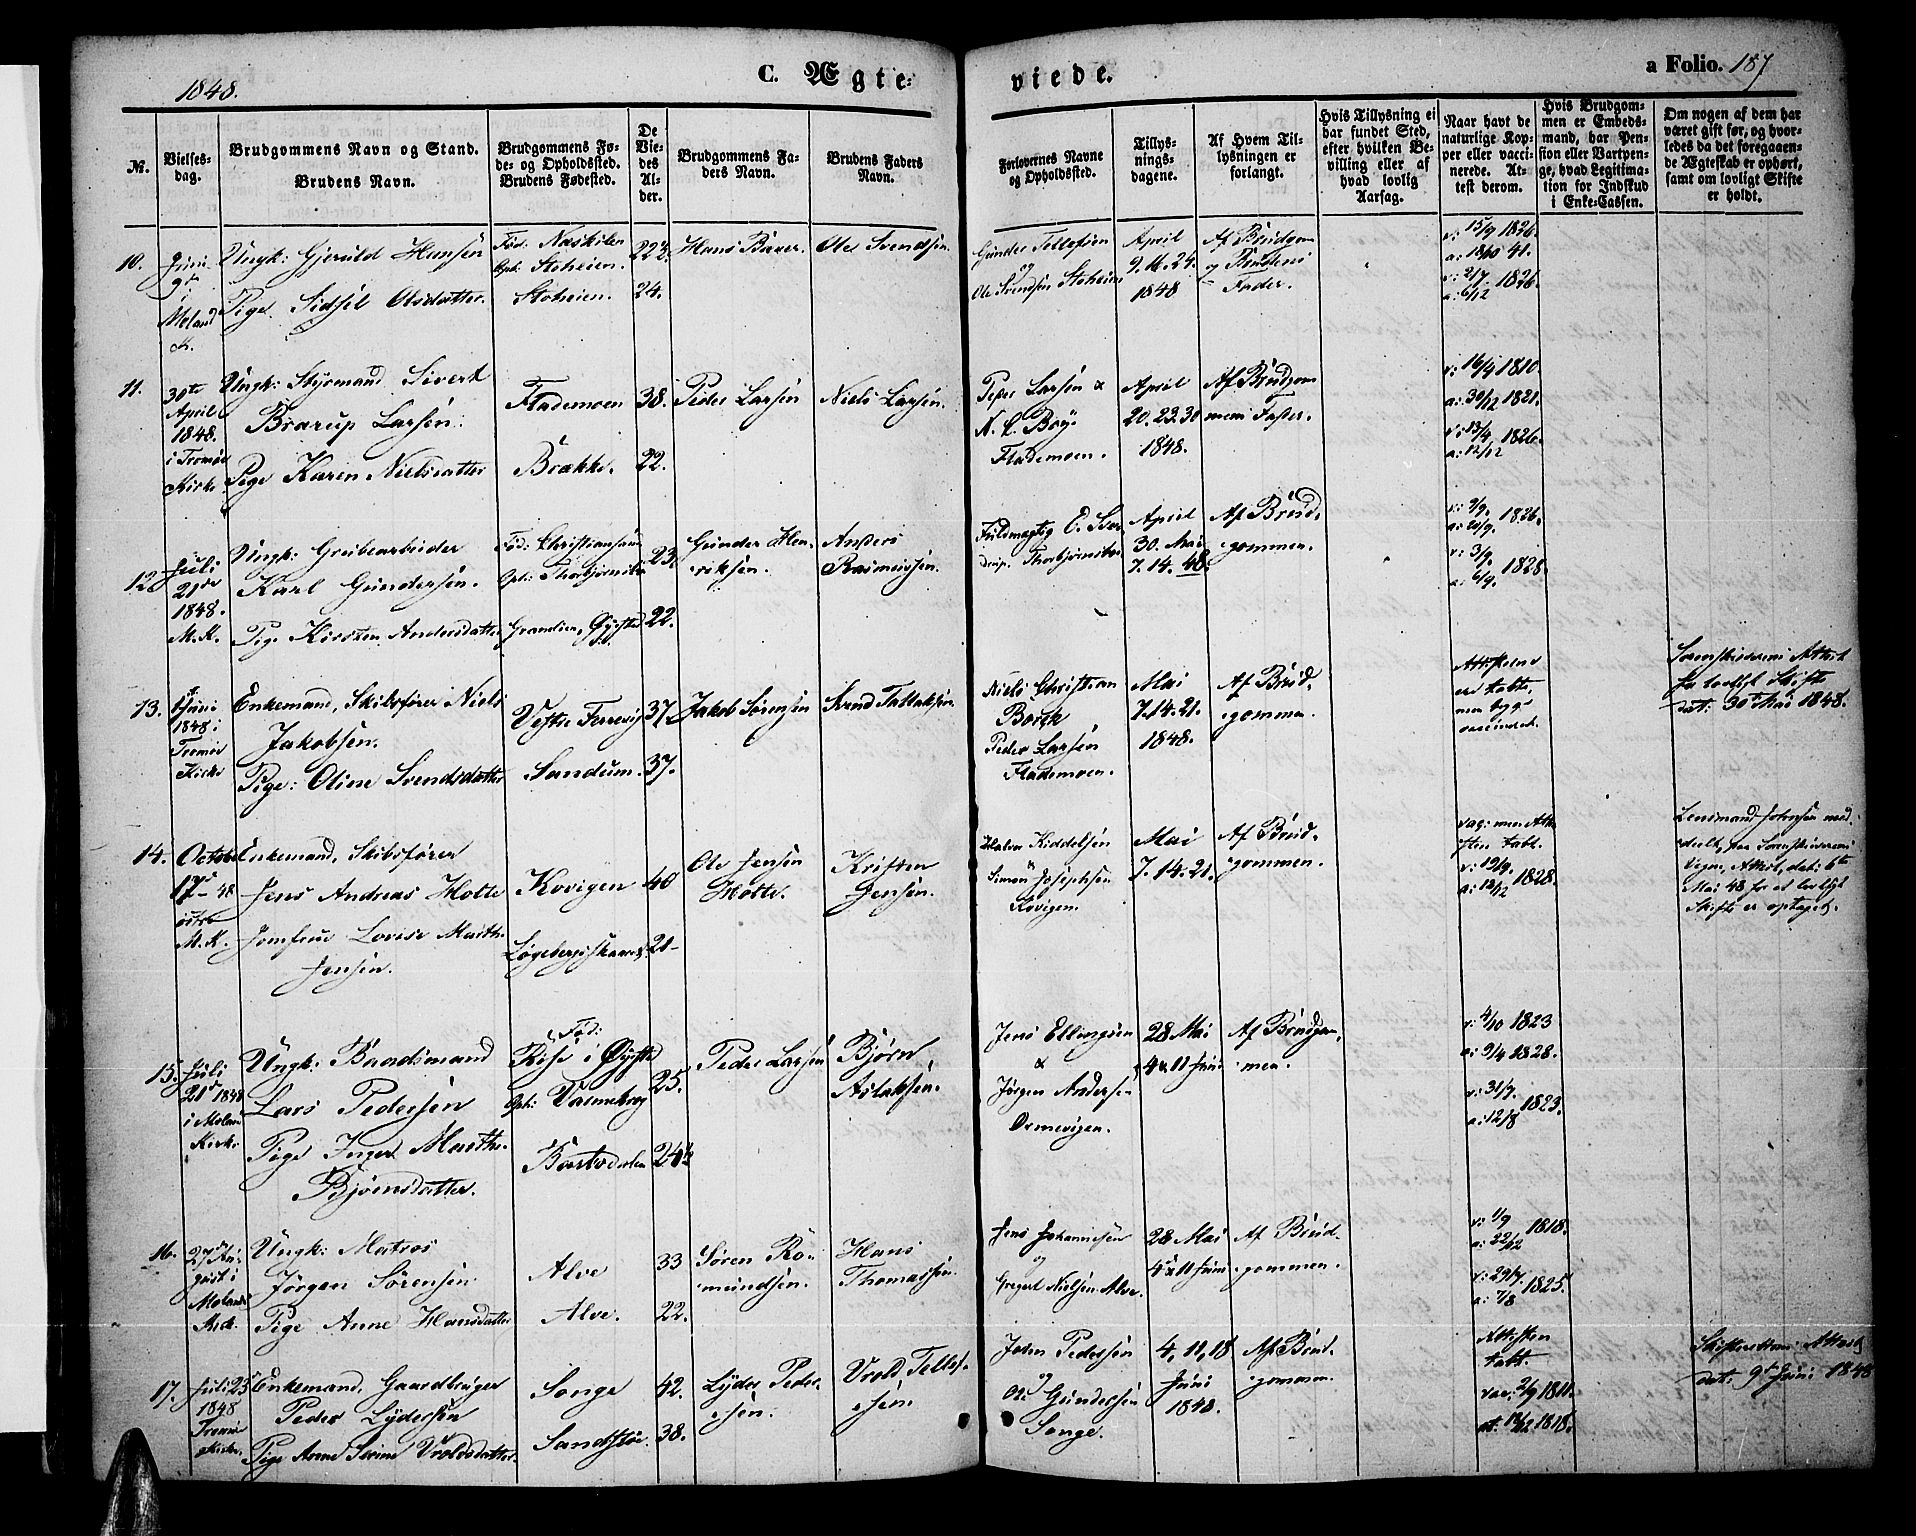 1848.
C. Ægte=
viede.
a Folio. 187
No.
Vielses-
dag.
Brudgommens Navn og Stand.
Brudens Navn.
Brudgommens Fø-
de- og Opholdssted.
Brudens Fødested.
De
Vie-
des
Al-
der.
Brudgommens Fa-
ders Navn.
Brudens Faders
Navn.
Forlovernes Navne
og Opholdssted.
Tillys-
nings-
dagene.
Af Hvem Til-
lysningen er
forlangt.
Hvis Tillysning ei
har fundet Sted,
efter hvilken Be-
villing eller af
hvad lovlig
Aarsag.
Naar havt de
naturlige Kop-
per eller vacci-
nerede. At-
test derom.
Hvis Brudgom-
men er Embeds-
mand, har Pen-
sion eller Vartpen-
ge, hvad Legitima-
tion for Indskud
i Enke-Cassen.
Om nogen af dem har
været gift før, og hvor-
ledes da det foregaaen-
de Ægteskab er ophørt,
samt om lovligt Skifte
er holdt.
10.
Juni
9de
Moland
K.
Ungk: Gjeruld Hansen
Pige Sidsil Olsdatter.
Fød: Naskilen
Oph: Stoheien.
Stoheien.
22½
24.
Hans Baer.
Ole Svendsen.
Gunder Tellefsen
og
Ole Svendsen Stoheien
April
9. 16. 24.
1848
Af Brudgom
og Brudens
Fader.
v: 15/9 1826.
a: 18/10 41.
v: 2/7
a: 6/12 1826.
11.
30te
April
1848.
i Tromø
Kirke
Ungk: Styrmand Sivert
Brarup Larsen.
Pige Karen Nielsdatter
Flademoen
Brække.
38.
22.
Peder Larsen
Niels Larsen.
Peder Larsen &
N. C. Boy
Flademoen.
April
20. 23. 30
1848.
Af Brudgom
mens Faster.
v: 16/4 1810.
a: 30/12 1821.
v: 13/4
a: 12/12 1826.
12.
Juli
21de
1848.
M. K.
Ungk: Grubearbeider
Karl Gundersen.
Pige Kirsten Andersdatter
Fød: Christiansand
Oph: Thorbjørnsbo
Grandien, Øyestad
23.
22.
Gunder Hen-
riksen.
Anders
Rasmussen.
Fuldmægtig C. Sve
drup. Thorbjørnsbo
April
30. Mai
7. 14. 48.
Af Brud-
gommen.
v: 9/9.
a: 20/9. 1826.
v: 3/9.
a: 6/9. 1828.
13.
Juni
1848 i
Tromø
Kirke
Enkemand, Skibsfører Niels
Jakobsen.
Pige: Oline Svendsdatter
Vestre Terrevig
Sandum.
37.
37.
Jakob Sørensen
Svend Tallaksen
Niels Christian
Boreth
Peder Larsen
Flademoen.
Mai
7. 14. 21.
1848.
Af Brud-
gommen.
Attesterne
ere tabte,
men begge
vaccineret.
Sorenskriverens Attest
for lovligt Skifte
dat: 30te Mai 1848.
14.
October
17de 48
østre
M. K.
Enkemand, Skibsfører
Jens Andreas Holte
Jomfrue Lovise Marthe
Jensen.
Kovigen
Løgebergskaaret
40
21
Ole Jensen
Holte.
Kristen
Jensen.
Halvor Kiddelsen
&
Simon Josephsen
Kovigen.
Mai
7. 14. 21.
Af Brud-
gommen.
vac: men Att-
esten tabt.
v: 19/9.
a: 12/12 1828.
Lensmand Johnsen med-
deelt, paa Sorenskriverens
Vegne, Attest, dat: 6te
Mai 48 for at lovligt
Skifte er optaget.
15.
Juli
21de 1848
i Moland
Kirke
Ungk: Baadsmand
Lars Pedersen
Pige Inger Marthe
Bjørnsdatter.
Fød:
Rise i Øyestad
Oph: Vatnebrog
Bostadalen
25.
24½
Peder Larsen
Bjørn
Aslaksen.
Jens Ellingsen
&
Jørgen Andersen
Ormevigen.
28 Mai
4 & 11 Juni
Af Brudgom-
men.
v: 4/10 1823
a: 9/4 1828.
v: 31/7.
a: 12/8 1823.
16.
27de Au-
gust i
Moland
Kirke.
Ungk: Matros
Jørgen Sørensen
Pige Anne Hansdatter
Alve
Alve.
33
22.
Søren Ro-
mundsen.
Hans
Thomassen.
Jens Johannesen
og
Gregert Nielsen Alve.
28 Mai
4 & 11 Juni
Af Brud-
gommen.
v: 1/9
a: 22/12 1818.
v: 29/7.
a: 7/8 1825.
17.
Juli 25
1848
Tromø
Kirke.
Enkemand, Gaardbruger
Peder Lydersen
Pige Anne Serine Vroldsdatter
Songe
Sandstøe.
42.
38.
Lyder Peder-
sen.
Vrold Tellef-
sen
John Pedersen
og
Ole Gundersen
Songe.
4, 11, 18
Juni
1848.
Af Brud-
gommen
Attesten
tabt.
vac: 2/9 1811.
at. 12/12 1818.
Skifterettens Attest
dat: 9de Juni 1848